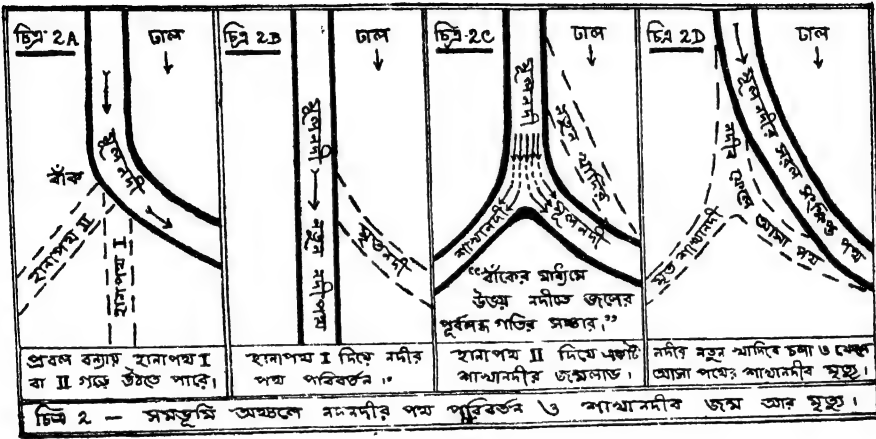 চিত্র 2A
ঢাল
মূল নদী
বাঁক
হানাপথ II
হানাপথ I
প্রবল বন্যায় হানাপথ I
বা II গড়ে উঠতে পারে।
চিত্র 2B
ঢাল
মূল নদী
নতুন নদীপথ
মৃত নদী
হানাপথ I দিয়ে নদীর
পথ পরিবর্তন।
চিত্র-2C
ঢাল
মূল নদী
নতুন খাদির
শাখানদী
মূল নদী
“বাঁকের মাধ্যমে
উভয় নদীতে জলের
পূর্বলব্ধ গতির সঞ্চার,”
হানাপথ II দিয়ে একটি
শাখানদীর জন্মলাভ।
চিত্র 2D
ঢাল
মূল নদীর সরল সংক্ষিপ্ত পথ
নদীর ফেলে আসা পথ
মৃত শাখানদী
নদীর নতুন খাদিরে চলা ও ফেলে
আসা পথের শাখানদীর মৃত্যু।
চিত্র 2 – সমভূমি অঞ্চলে নদনদীর পথ পরিবর্তন ও শাখানদীর জন্ম আর মৃত্যু।